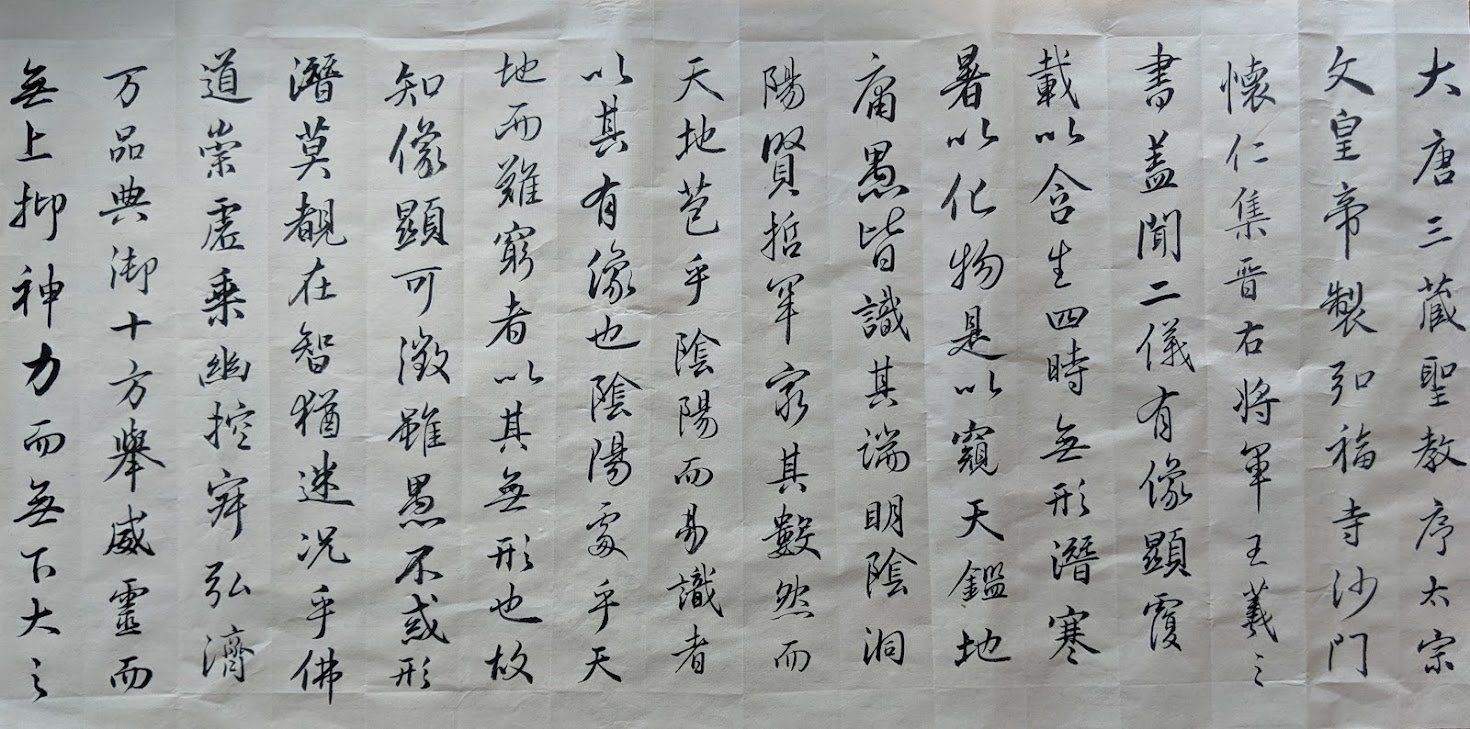 大唐三藏聖教序太宗
文皇帝製弘福寺沙門
懷仁集晉右將軍王羲之
書蓋聞二儀有像顯覆
載以含生四時無形潛寒
暑以化物是以窺天鑑地
庸愚皆識其端明陰洞
陽賢哲罕窮其數然而
天地苞乎陰陽而易識者
以其有像也陰陽處乎天
地而難窮者以其無形也故
知像顯可徵雖愚不惑形
潛莫覩在智猶迷況乎佛
道崇虛乘幽控寂弘濟
万品典御十方舉威靈而
無上抑神力而無下大之